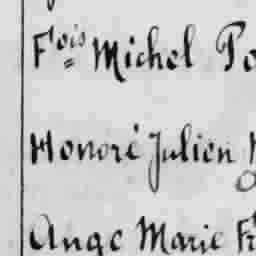 Fois Michel Po
Honoré Julien
Ange Marie Fr